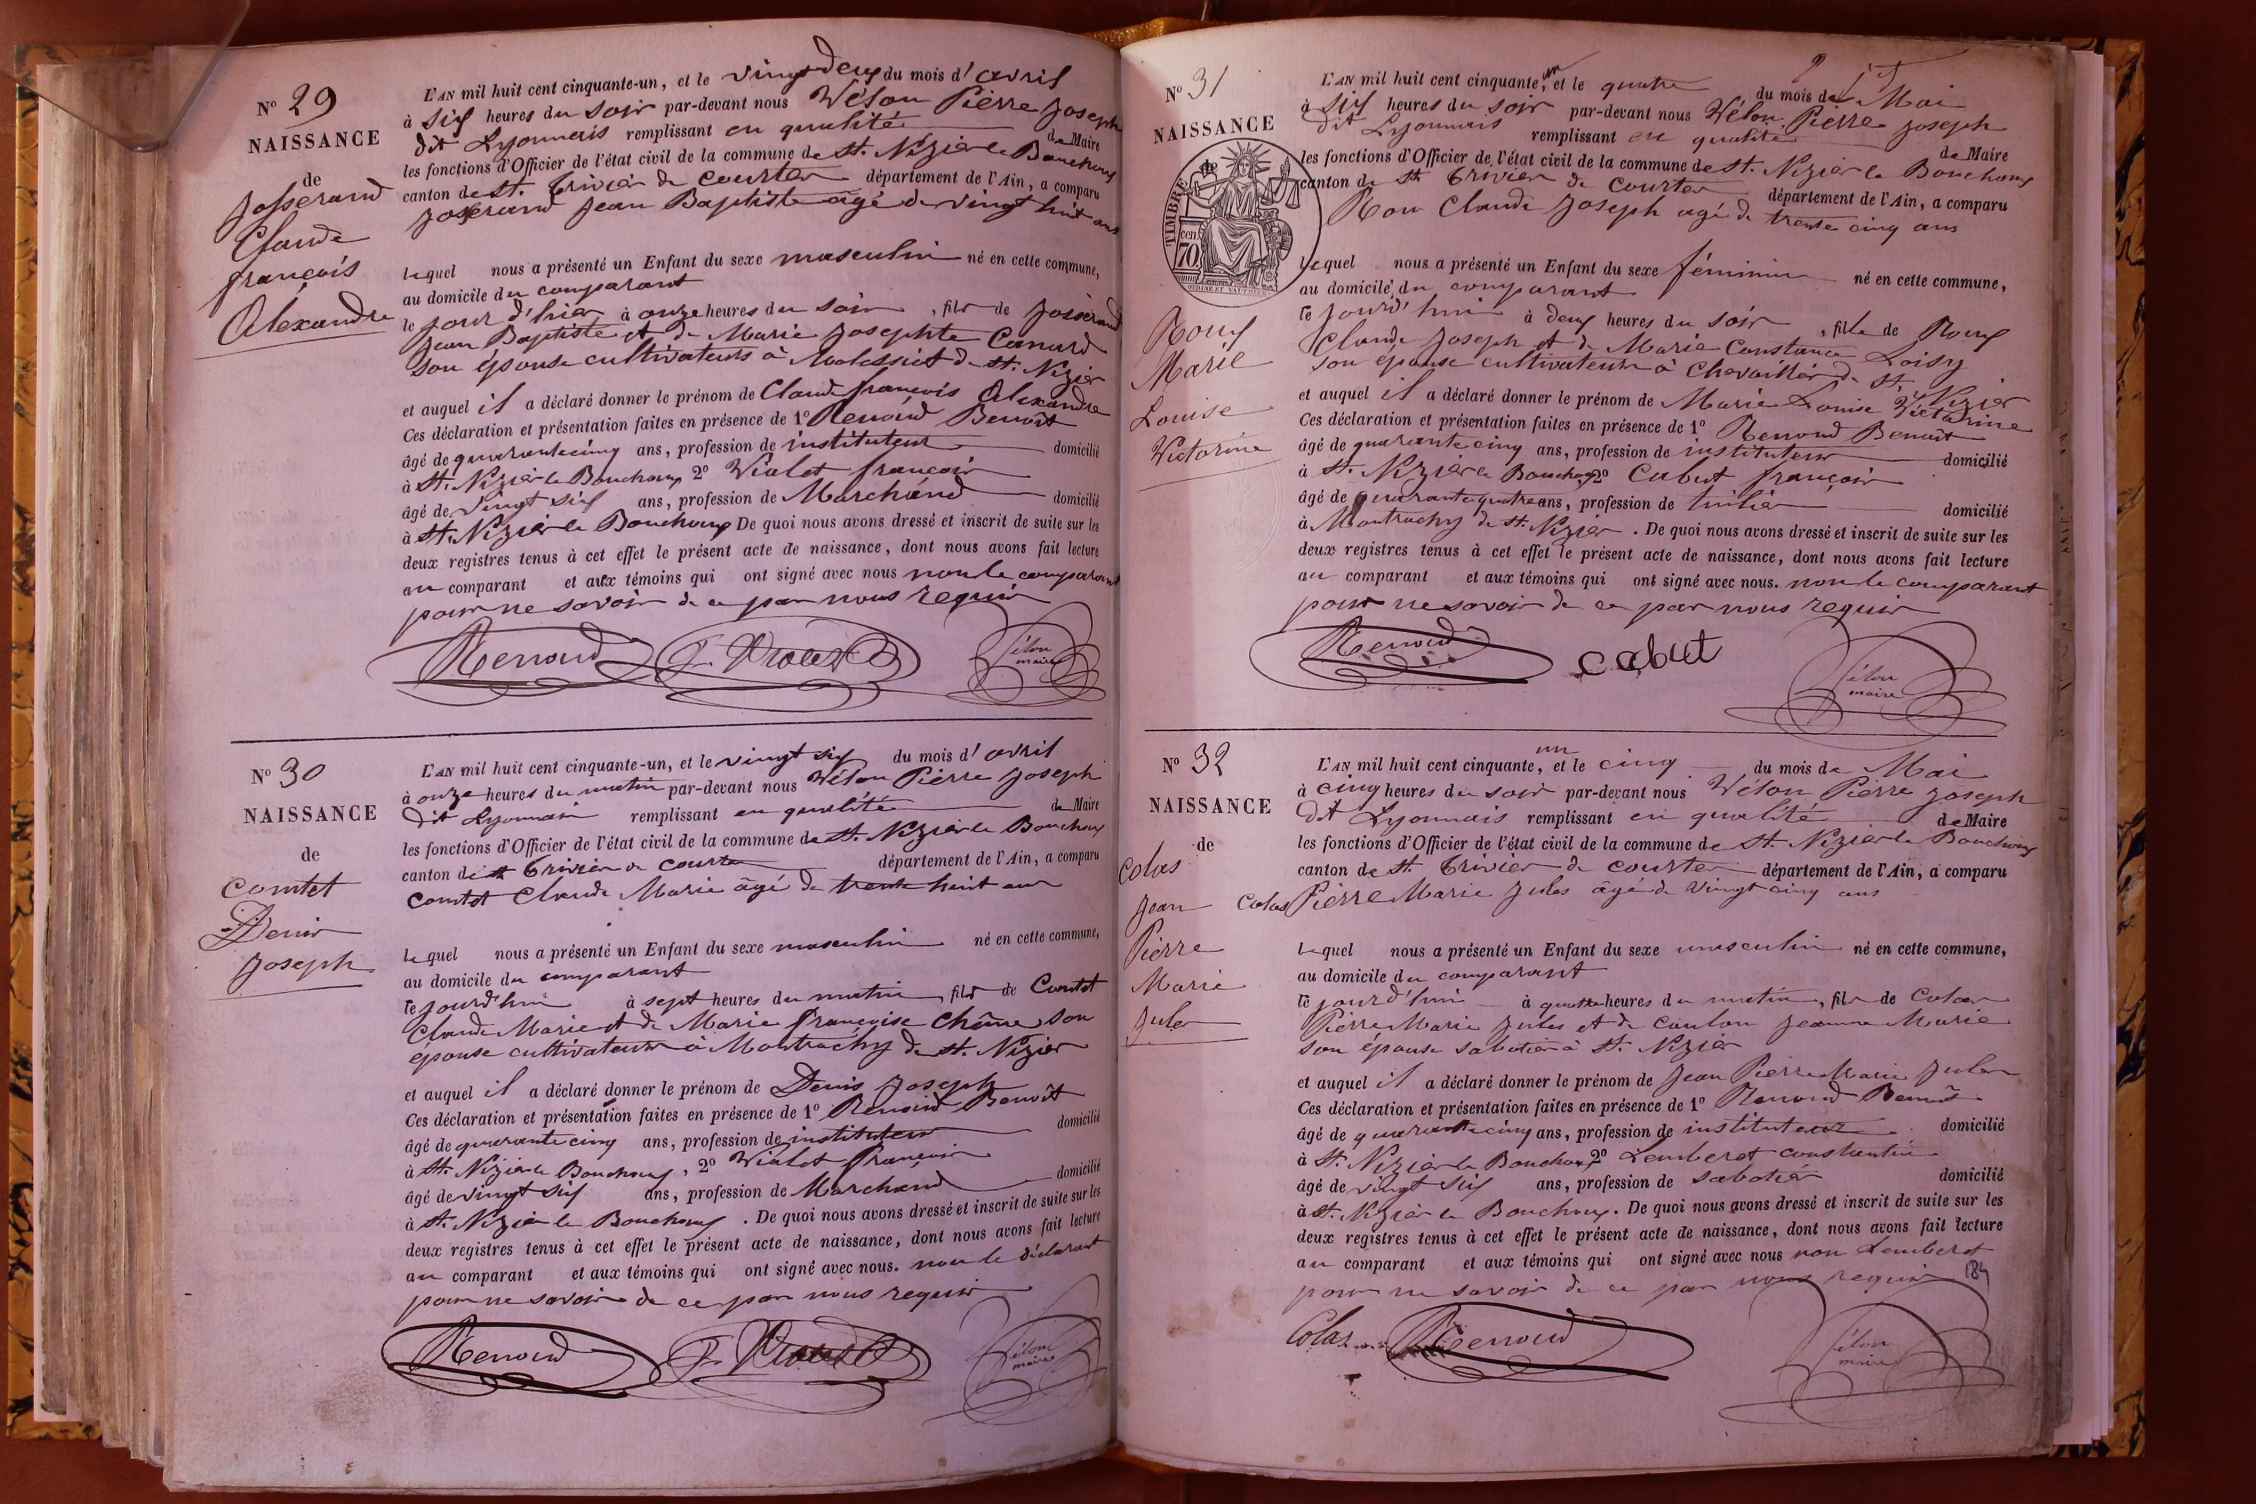 N° 29
NAISSANCE
de
Josserand
Claude
françois
Alexandre
L'AN mil huit cent cinquante-un, et le vingt deux du mois d'avril
à six heures du soir par-devant nous Vélon Pierre Joseph
dit Lyonnais remplissant en qualité de Maire
les fonctions d'Officier de l'état civil de la commune de St. Nizier le Bouchoux
canton de St. Trivier de Courtes département de l'Ain, a comparu
Josserand Jean Baptiste âgé de vingt huit ans
lequel nous a présenté un Enfant du sexe masculin né en cette commune,
au domicile du comparant
le jour d'hier à onze heures du soir, fils de Josserand
Jean Baptiste et de Marie Josephte Canard
son épouse cultivateurs à Molessiat de St. Nizier
et auquel il a déclaré donner le prénom de Claude françois Alexandre
Ces déclaration et présentation faites en présence de 1° Renoud Benoît
âgé de quarante cinq ans, profession de instituteur domicilié
à St. Nizier le Bouchoux 2° Vialet françois
âgé de vingt six ans, profession de Marchand domicilié
à St. Nizier le Bouchoux De quoi nous avons dressé et inscrit de suite sur les
deux registres tenus à cet effet le présent acte de naissance, dont nous avons fait lecture
au comparant et aux témoins qui ont signé avec nous non le comparant
pour ne savoir de ce par nous requis
Renoud Vélon maire
N° 30
NAISSANCE
de
Comtet
Denis
Joseph
L'AN mil huit cent cinquante-un, et le vingt six du mois d'avril
à onze heures du matin par-devant nous Vélon Pierre Joseph
dit Lyonnais remplissant en qualité de Maire
les fonctions d'Officier de l'état civil de la commune de St. Nizier le Bouchoux
canton de St Trivier de Courtes département de l'Ain, a comparu
Comtet Claude Marie âgé de trente huit ans
lequel nous a présenté un Enfant du sexe masculin né en cette commune,
au domicile du comparant
le jourd'hui à sept heures du matin, fils de Comtet
Claude Marie et de Marie françoise Chêne son
épouse cultivateurs à Montrachy de St. Nizier
et auquel il a déclaré donner le prénom de Denis Joseph
Ces déclaration et présentation faites en présence de 1° Renoud Benoît
âgé de quarante cinq ans, profession de instituteur domicilié
à St. Nizier le Bouchoux, 2° Vialet françois
âgé de vingt six ans, profession de Marchand domicilié
à St. Nizier le Bouchoux. De quoi nous avons dressé et inscrit de suite sur les
deux registres tenus à cet effet le présent acte de naissance, dont nous avons fait lecture
au comparant et aux témoins qui ont signé avec nous. non le déclarant
pour ne savoir de ce par nous requis
Renoud Vélon maire
N° 31
NAISSANCE
de
TIMBRE
70 cen
Roux
Marie
Louise
Victorine
L'AN mil huit cent cinquante, un et le quatre du mois de Mai
à six heures du soir par-devant nous Vélon Pierre Joseph
dit Lyonnais remplissant en qualité de Maire
les fonctions d'Officier de l'état civil de la commune de St. Nizier le Bouchoux
canton de St Trivier de Courtes département de l'Ain, a comparu
Roux Claude Joseph agé de trente cinq ans
lequel nous a présenté un Enfant du sexe féminin né en cette commune,
au domicile du comparant
le jourd'hui à deux heures du soir, fille de Roux
Claude Joseph et de Marie Constance Loisy
son épouse cultivateurs à Chevaillier de St. Nizier
et auquel il a déclaré donner le prénom de Marie Louise Victorine
Ces déclaration et présentation faites en présence de 1° Renoud Benoît
âgé de quarante cinq ans, profession de instituteur domicilié
à St. Nizier le Bouchoux 2° Cabut françois
âgé de quarante quatre ans, profession de tuilier domicilié
à Montrachy de St. Nizier. De quoi nous avons dressé et inscrit de suite sur les
deux registres tenus à cet effet le présent acte de naissance, dont nous avons fait lecture
au comparant et aux témoins qui ont signé avec nous. non le comparant
pour ne savoir de ce par nous requis
Renoud cabut Vélon maire
N° 32
NAISSANCE
de
Colas
Jean
Pierre
Marie
Jules
L'AN mil huit cent cinquante, un et le cinq du mois de Mai
à cinq heures du soir par-devant nous Vélon Pierre Joseph
dit Lyonnais remplissant en qualité de Maire
les fonctions d'Officier de l'état civil de la commune de St. Nizier le Bouchoux
canton de St. Trivier de Courtes département de l'Ain, a comparu
Colas Pierre Marie Jules âgé de vingt cinq ans
lequel nous a présenté un Enfant du sexe masculin né en cette commune,
au domicile du comparant
le jourd'hui à quatre heures du matin, fils de Colas
Pierre Marie Jules et de Coulon Jeanne Marie
son épouse sabotier à St. Nizier
et auquel il a déclaré donner le prénom de Jean Pierre Marie Jules
Ces déclaration et présentation faites en présence de 1° Renoud Benoît
âgé de quarante cinq ans, profession de instituteur domicilié
à St. Nizier le Bouchoux 2° Lemberet constantin
âgé de vingt six ans, profession de sabotier domicilié
à St. Nizier le Bouchoux. De quoi nous avons dressé et inscrit de suite sur les
deux registres tenus à cet effet le présent acte de naissance, dont nous avons fait lecture
au comparant et aux témoins qui ont signé avec nous non Lemberet
pour ne savoir de ce par nous requis
184
Colas Renoud Vélon maire